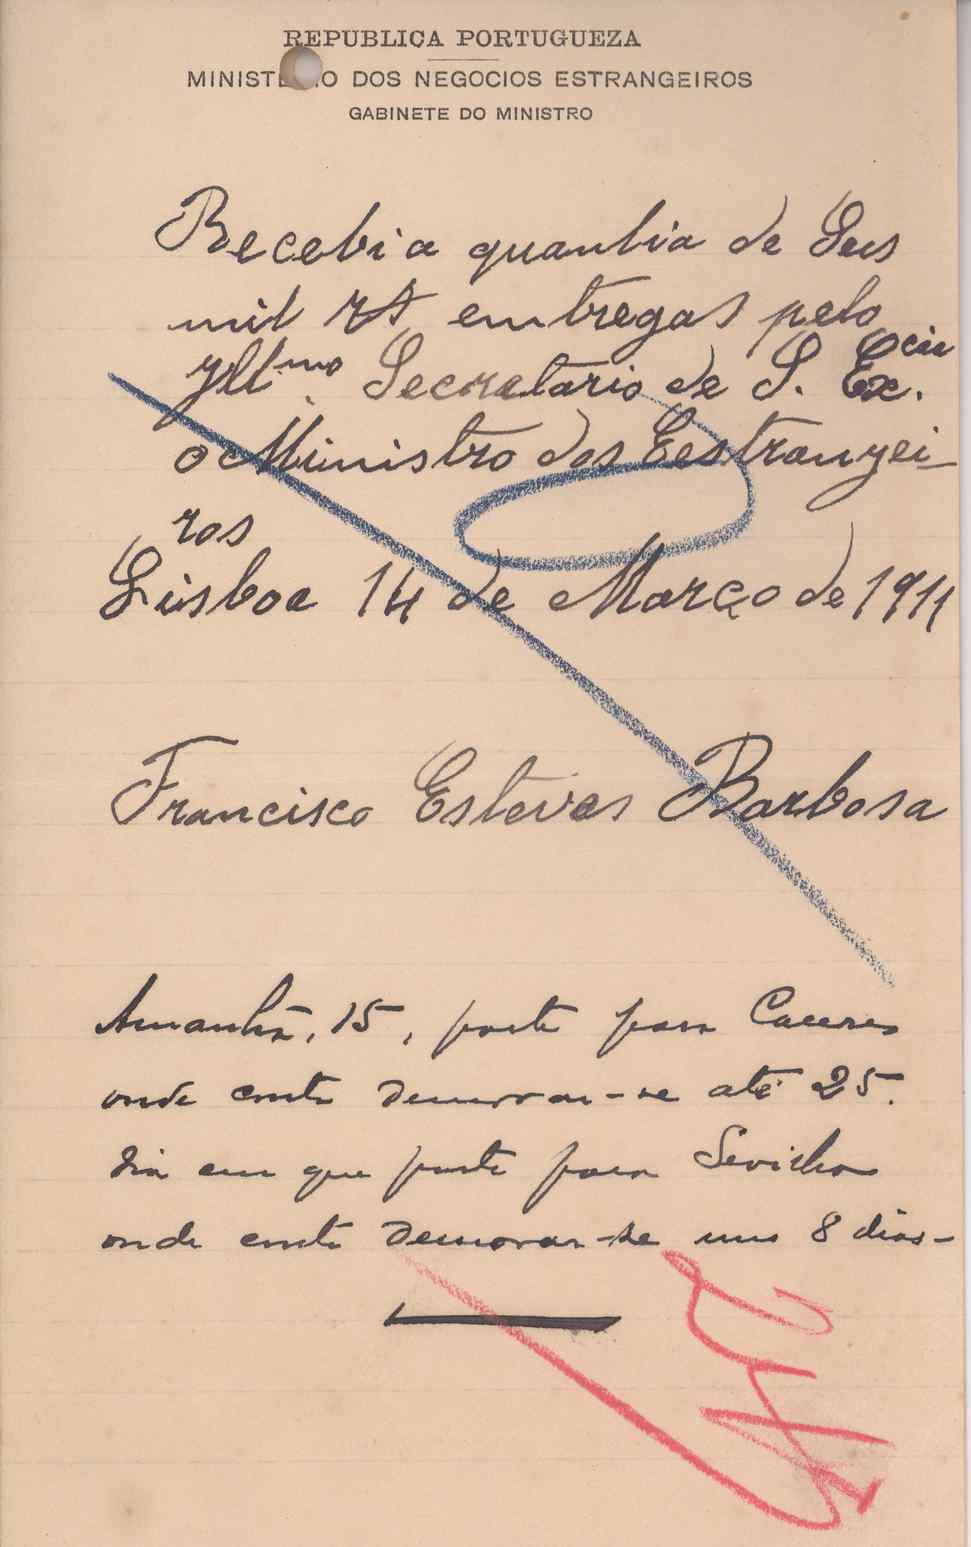 REPUBLICA PORTUGUEZA
MINISTERIO DOS NEGOCIOS ESTRANGEIROS
GABINETE DO MINISTRO
Recebi a quantia de Seis
mil rs entregas pelo
Yllmo. Secretario de S. Excia.
o Ministro dos Eestranjei-
ros
Lisboa 14 de Março de 1911
Francisco Esteves Barbosa
Amanhã, 15, parte para Caceres
onde conta demorar-se até 25.
dia em que parte para Sevilha
onde conta demorar-se uns 8 dias-